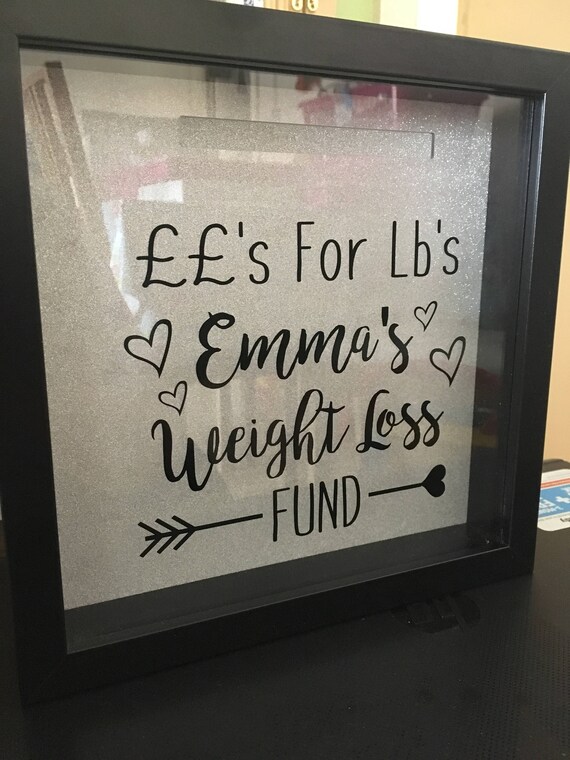 ££'s For Lb's
Emma's
Weight Loss
FUND